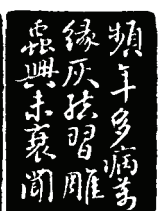 頻年多病萬
緣灰結習雕
蟲興未衰聞